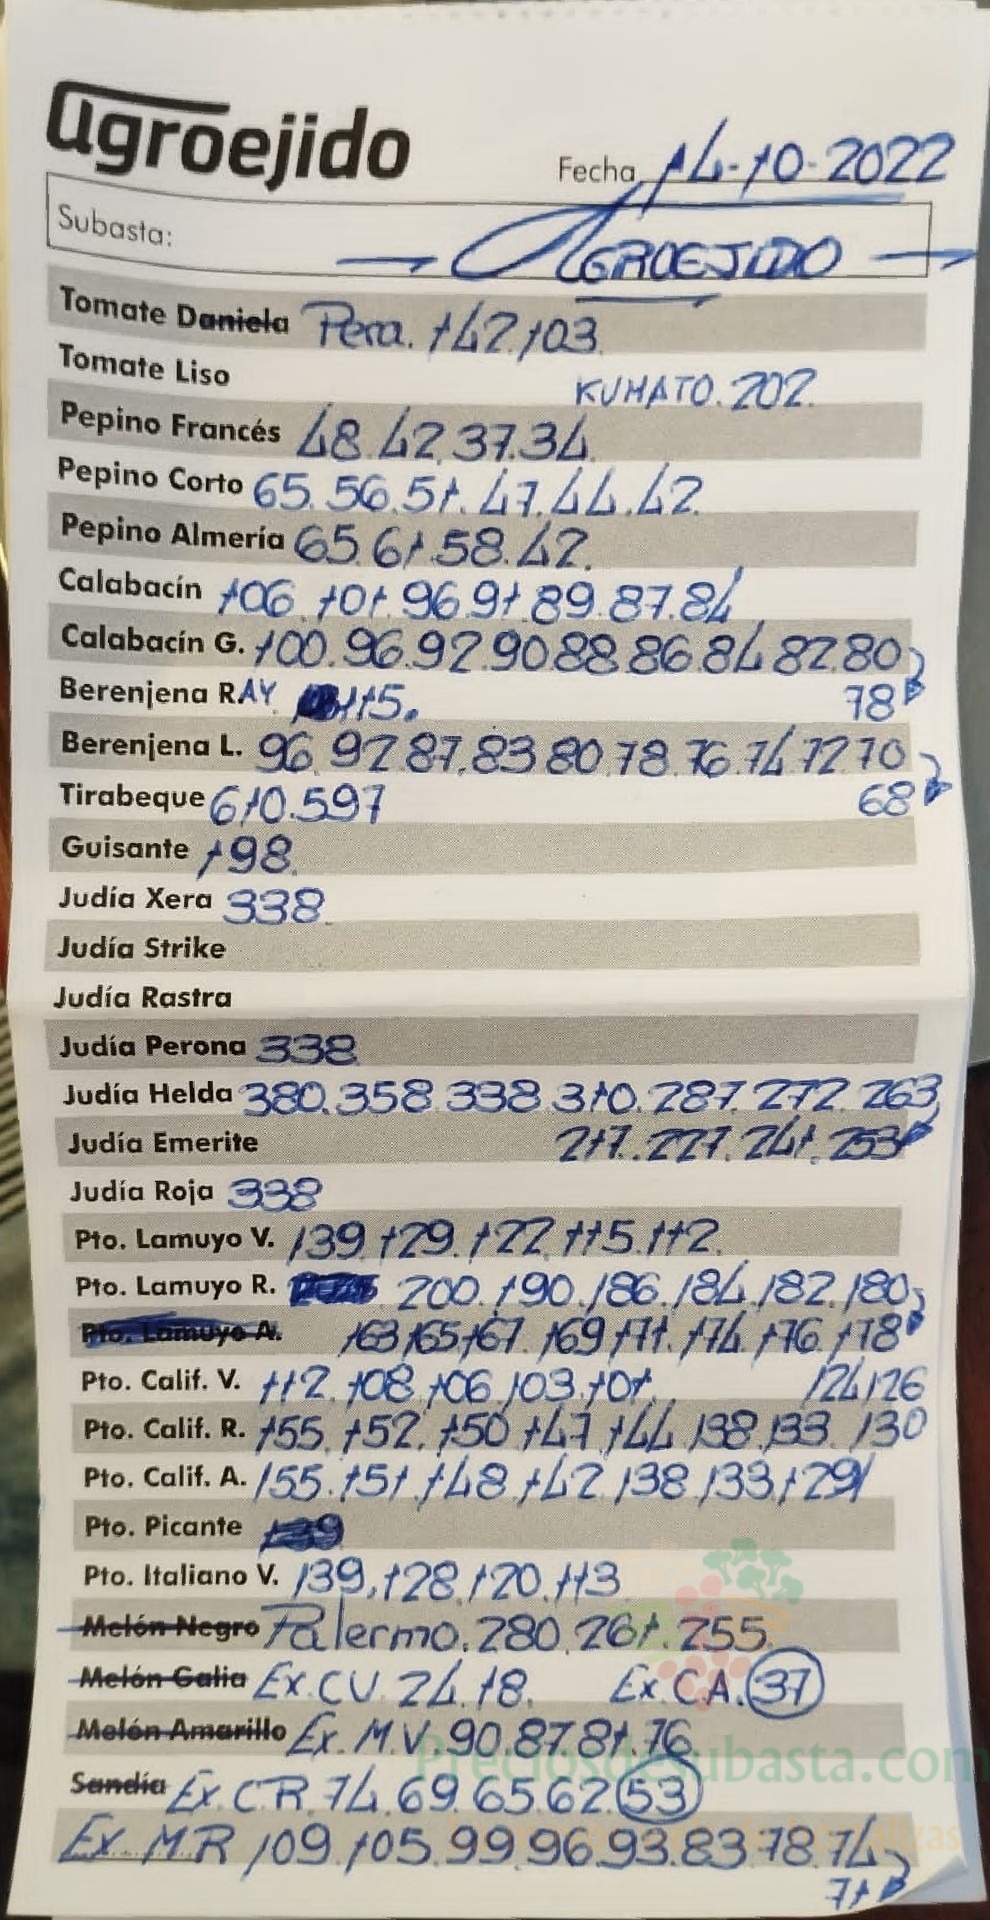 agroejido
Fecha 14-10-2022
Subasta: AGROEJIDO
Tomate Daniela Pera. 142.103
Tomate Liso KUMATO. 202.
Pepino Francés 48.42.37.34.
Pepino Corto 65.56.51.47.44.42.
Pepino Almería 65.61.58.42.
Calabacín 106.101.96.91.89.87.84
Calabacín G. 100.96.92.90.88.86.84.82.80
Berenjena RAY 115. 78
Berenjena L. 96.92.87.83.80.78.76.74.72.70
Tirabeque 610.597 68
Guisante 198.
Judía Xera 338.
Judía Strike
Judía Rastra
Judía Perona 338
Judía Helda 380.358.338.310.287.272.263
Judía Emerite 217.227.241.253
Judía Roja 338
Pto. Lamuyo V. 139.129.122.115.112.
Pto. Lamuyo R. 200.190.186.184.182.180
Pto. Lamuyo A. 163.165.167.169.171.174.176.178
Pto. Calif. V. 112.108.106.103.101. 124.126
Pto. Calif. R. 155.152.150.147.144.138.133.130
Pto. Calif. A. 155.151.148.142.138.133.129
Pto. Picante 139
Pto. Italiano V. 139.128.120.113
Melón Negro Palermo. 280.261.255.
Melón Galia Ex.CV. 24.18. Ex.CA. 37
Melón Amarillo Ex. M.V. 90.87.81.76
Sandía Ex.CR. 74.69.65.62.53
Ex. MR 109.105.99.96.93.83.78.74
71
Preciosdesubasta.com